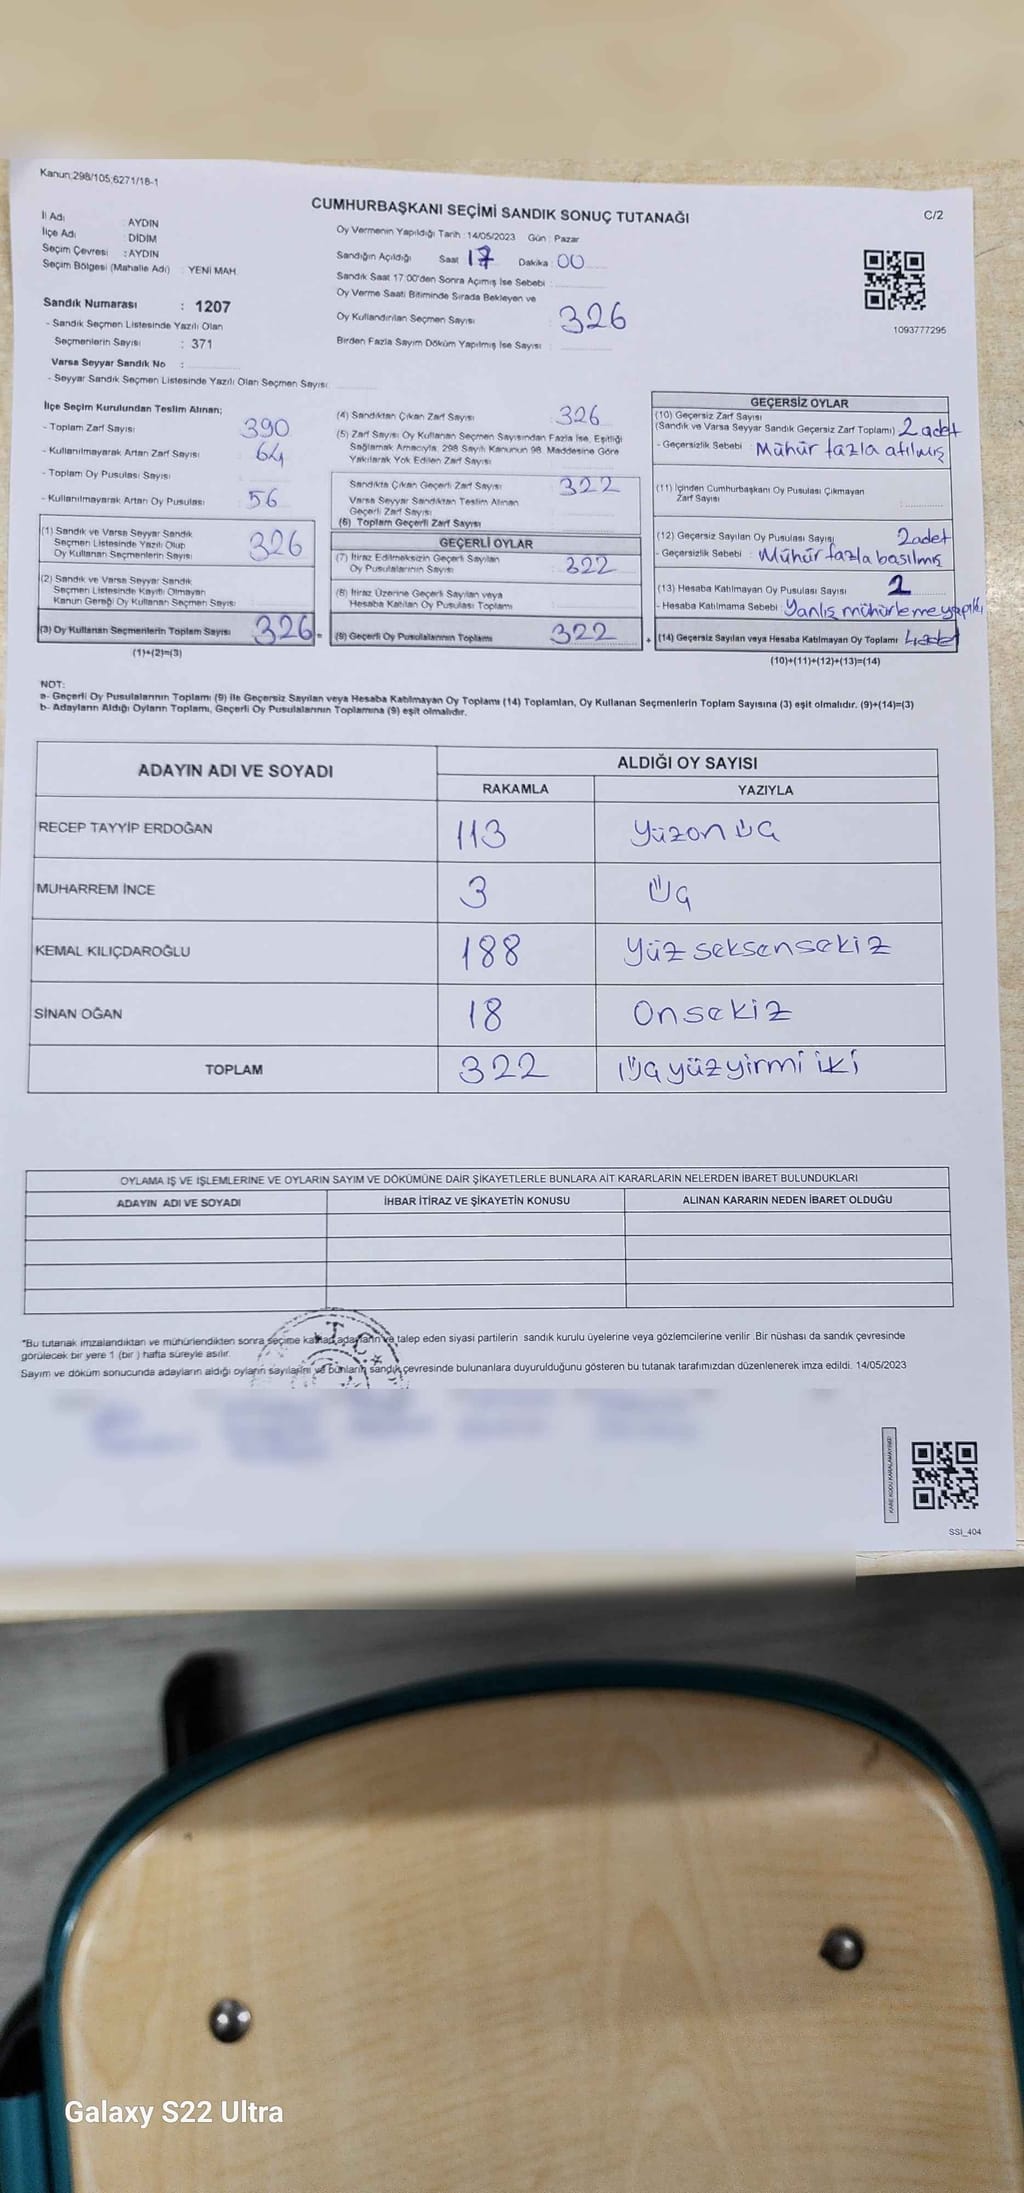 Kanun;298/105;6271/18-1
CUMHURBAŞKANI SEÇİMİ SANDIK SONUÇ TUTANAĞI
C/2
İl Adı : AYDIN
İlçe Adı : DİDİM
Seçim Çevresi : AYDIN
Seçim Bölgesi (Mahalle Adı) : YENİ MAH.
Oy Vermenin Yapıldığı Tarih : 14/05/2023 Gün : Pazar
Sandığın Açıldığı Saat 17 Dakika : 00
Sandık Saat 17:00'den Sonra Açımış İse Sebebi :
Oy Verme Saati Bitiminde Sırada Bekleyen ve
Oy Kullandırılan Seçmen Sayısı : 326
Birden Fazla Sayım Döküm Yapılmış İse Sayısı :
1093777295
Sandık Numarası : 1207
- Sandık Seçmen Listesinde Yazılı Olan
Seçmenlerin Sayısı : 371
Varsa Seyyar Sandık No :
- Seyyar Sandık Seçmen Listesinde Yazılı Olan Seçmen Sayısı:
İlçe Seçim Kurulundan Teslim Alınan;
- Toplam Zarf Sayısı : 390
- Kullanılmayarak Artan Zarf Sayısı : 64
- Toplam Oy Pusulası Sayısı :
- Kullanılmayarak Artan Oy Pusulası : 56
(1) Sandık ve Varsa Seyyar Sandık
Seçmen Listesinde Yazılı Olup
Oy Kullanan Seçmenlerin Sayısı : 326
(2) Sandık ve Varsa Seyyar Sandık
Seçmen Listesinde Kayıtlı Olmayan
Kanun Gereği Oy Kullanan Seçmen Sayısı:
(3) Oy Kullanan Seçmenlerin Toplam Sayısı 326 =
(1)+(2)=(3)
(4) Sandıktan Çıkan Zarf Sayısı : 326
(5) Zarf Sayısı Oy Kullanan Seçmen Sayısından Fazla İse, Eşitliği
Sağlamak Amacıyla, 298 Sayılı Kanunun 98. Maddesine Göre
Yakılarak Yok Edilen Zarf Sayısı :
Sandıkta Çıkan Geçerli Zarf Sayısı : 322
Varsa Seyyar Sandıktan Teslim Alınan
Geçerli Zarf Sayısı
(6) Toplam Geçerli Zarf Sayısı
GEÇERLİ OYLAR
(7) İtiraz Edilmeksizin Geçerli Sayılan
Oy Pusulalarının Sayısı : 322
(8) İtiraz Üzerine Geçerli Sayılan veya
Hesaba Katılan Oy Pusulası Toplamı :
(9) Geçerli Oy Pusulalarının Toplamı 322 +
GEÇERSİZ OYLAR
(10) Geçersiz Zarf Sayısı
(Sandık ve Varsa Seyyar Sandık Geçersiz Zarf Toplamı) 2 adet
- Geçersizlik Sebebi : Mühür fazla atılmış
(11) İçinden Cumhurbaşkanı Oy Pusulası Çıkmayan
Zarf Sayısı :
(12) Geçersiz Sayılan Oy Pusulası Sayısı : 2adet
- Geçersizlik Sebebi : Mühür fazla basılmış
(13) Hesaba Katılmayan Oy Pusulası Sayısı : 2
- Hesaba Katılmama Sebebi : Yanlış mühürleme
(14) Geçersiz Sayılan veya Hesaba Katılmayan Oy Toplamı 4adet
(10)+(11)+(12)+(13)=(14)
NOT:
a- Geçerli Oy Pusulalarının Toplamı (9) ile Geçersiz Sayılan veya Hesaba Katılmayan Oy Toplamı (14) Toplamları, Oy Kullanan Seçmenlerin Toplam Sayısına (3) eşit olmalıdır. (9)+(14)=(3)
b- Adayların Aldığı Oyların Toplamı, Geçerli Oy Pusulalarının Toplamına (9) eşit olmalıdır.
ADAYIN ADI VE SOYADI
ALDIĞI OY SAYISI
RAKAMLA YAZIYLA
RECEP TAYYİP ERDOĞAN 113 Yüzon üç
MUHARREM İNCE 3 Üç
KEMAL KILIÇDAROĞLU 188 Yüz seksensekiz
SİNAN OĞAN 18 Onsekiz
TOPLAM 322 Üç yüz yirmi iki
OYLAMA İŞ VE İŞLEMLERİNE VE OYLARIN SAYIM VE DÖKÜMÜNE DAİR ŞİKAYETLERLE BUNLARA AİT KARARLARIN NELERDEN İBARET BULUNDUKLARI
ADAYIN ADI VE SOYADI İHBAR İTİRAZ VE ŞİKAYETİN KONUSU ALINAN KARARIN NEDEN İBARET OLDUĞU
T.C.
*Bu tutanak imzalandıktan ve mühürlendikten sonra seçime katılan adayların ve talep eden siyasi partilerin sandık kurulu üyelerine veya gözlemcilerine verilir .Bir nüshası da sandık çevresinde
görülecek bir yere 1 (bir ) hafta süreyle asılır.
Sayım ve döküm sonucunda adayların aldığı oyların sayılarını ve bunların sandık çevresinde bulunanlara duyurulduğunu gösteren bu tutanak tarafımızdan düzenlenerek imza edildi. 14/05/2023
KARE KODU KARALAMAYINIZ!
SSİ_404
Galaxy S22 Ultra